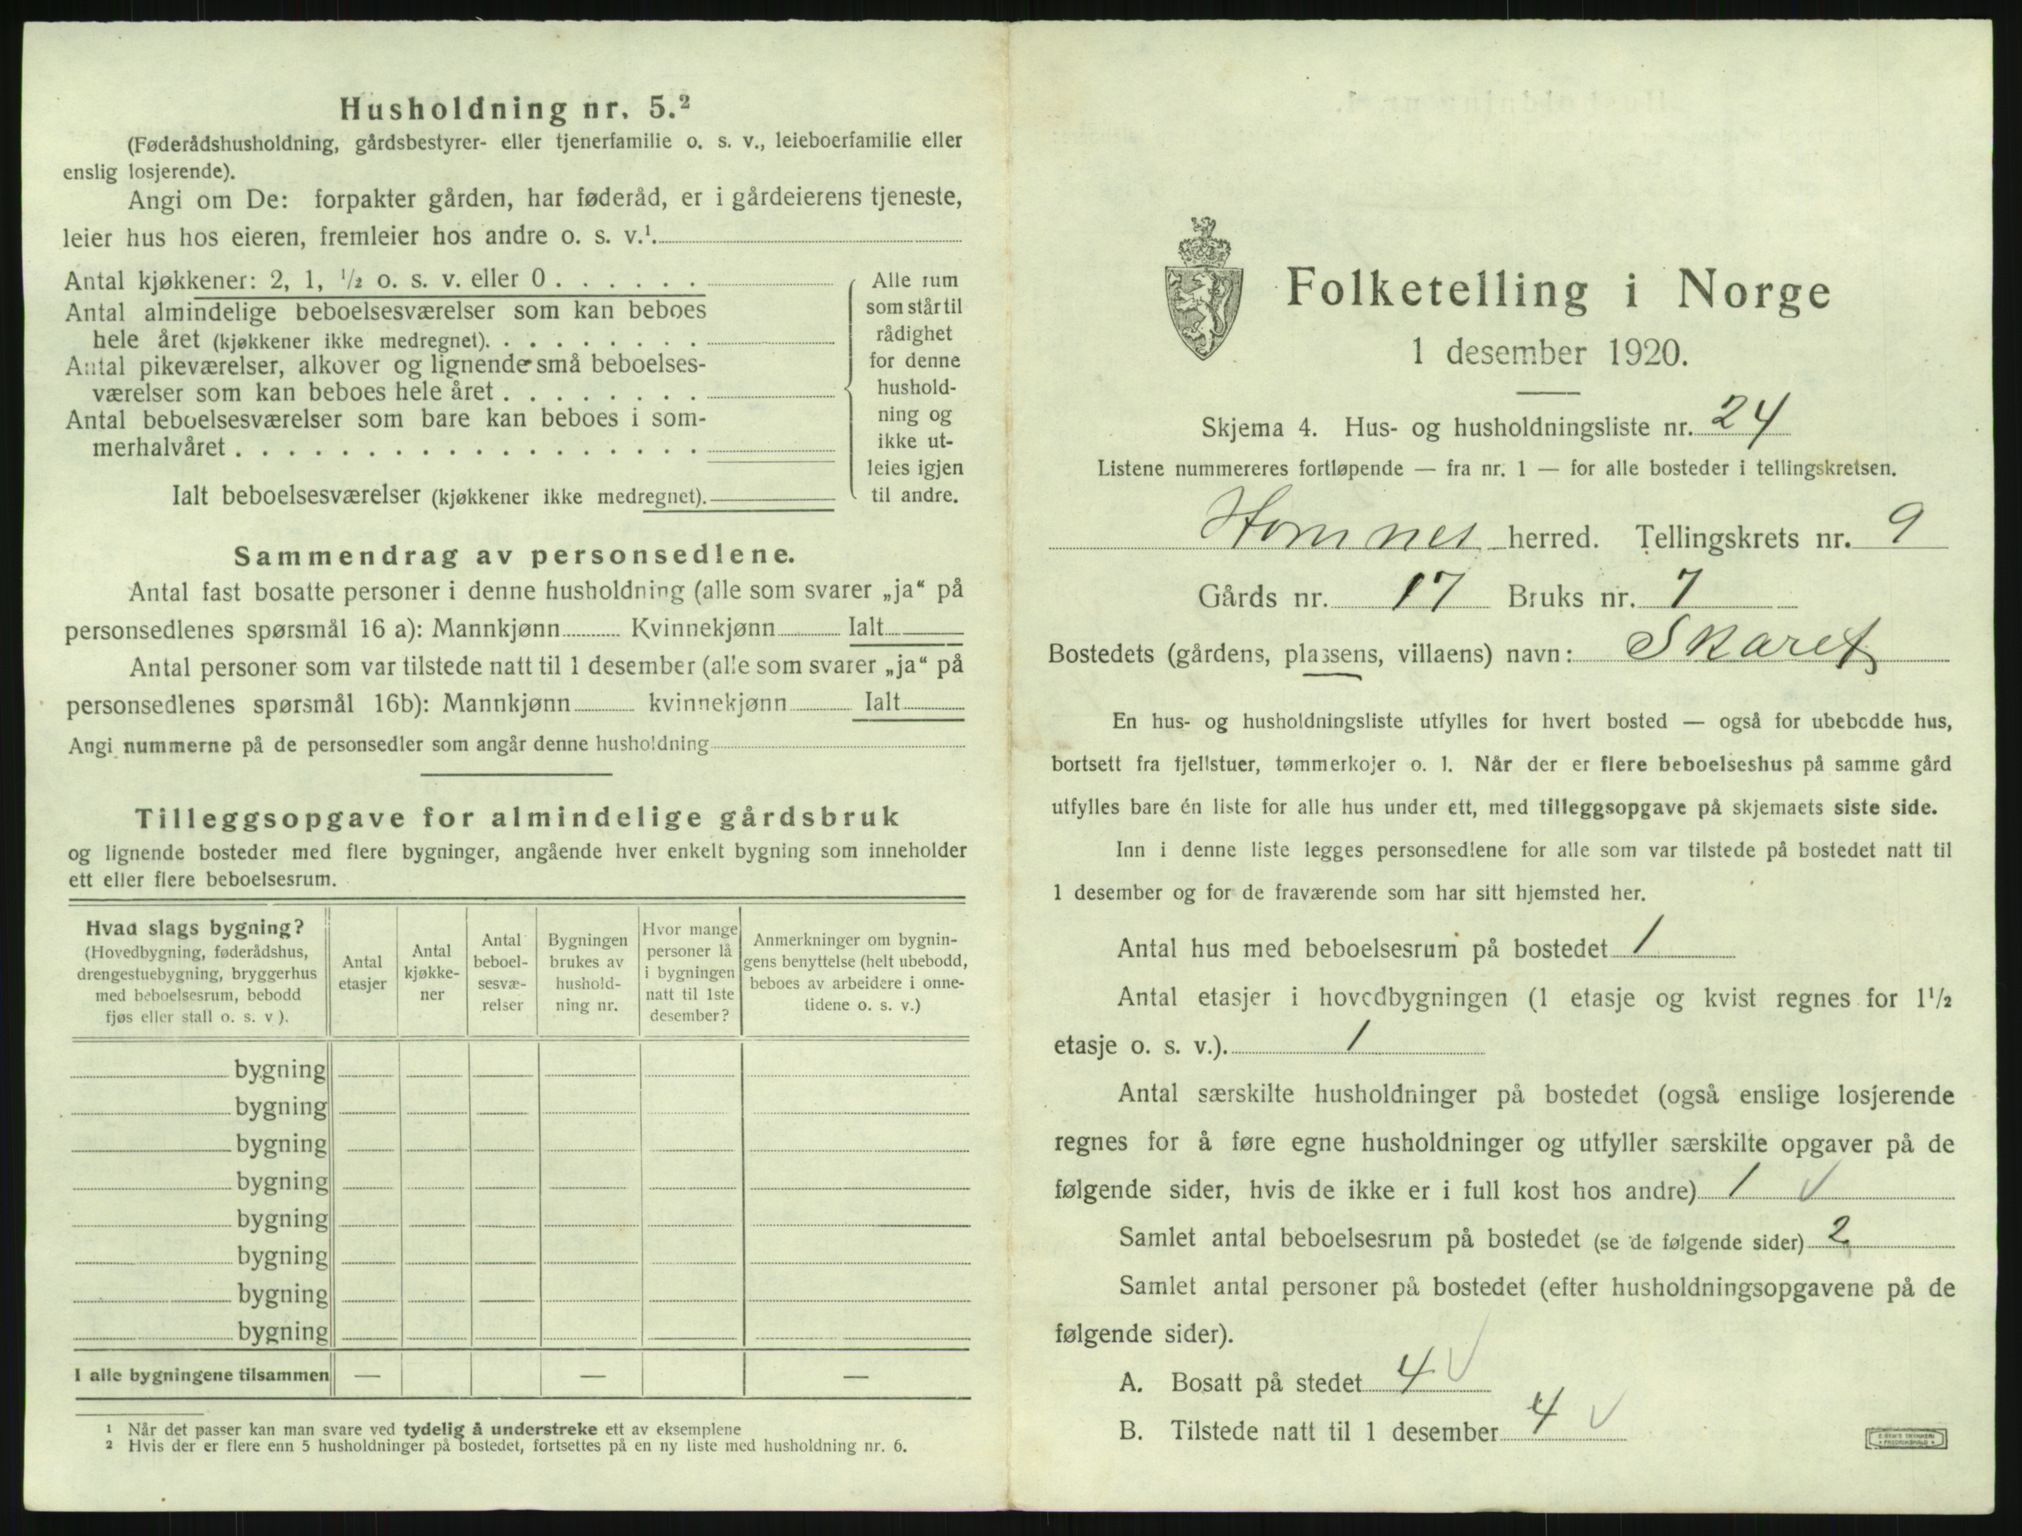 Husholdning nr. 5.²
(Føderådshusholdning, gårdsbestyrer- eller tjenerfamilie o. s. v., leieboerfamilie eller
enslig losjerende).
Angi om De: forpakter gården, har føderåd, er i gårdeierens tjeneste,
leier hus hos eieren, fremleier hos andre o. s. v.¹.
Antal kjøkkener: 2, 1, ½ o. s. v. eller 0 . . . . . .
Antal almindelige beboelsesværelser som kan beboes
hele året (kjøkkener ikke medregnet). . . . . . . . .
Antal pikeværelser, alkover og lignende små beboelses-
værelser som kan beboes hele året . . . . . . . .
Antal beboelsesværelser som bare kan beboes i som-
merhalvåret . . . . . . . . . . . . . . . . . .
Ialt beboelsesværelser (kjøkkener ikke medregnet).
Alle rum
som står til
rådighet
for denne
hushold-
ning og
ikke ut-
leies igjen
til andre.
Sammendrag av personsedlene.
Antal fast bosatte personer i denne husholdning (alle som svarer „ja“ på
personsedlenes spørsmål 16 a): Mannkjønn Kvinnekjønn Ialt
Antal personer som var tilstede natt til 1 desember (alle som svarer „ja“ på
personsedlenes spørsmål 16b): Mannkjønn kvinnekjønn Ialt
Angi nummerne på de personsedler som angår denne husholdning
Tilleggsopgave for almindelige gårdsbruk
og lignende bosteder med flere bygninger, angående hver enkelt bygning som inneholder
ett eller flere beboelsesrum.
Hvad slags bygning?
(Hovedbygning, føderådshus,
drengestuebygning, bryggerhus
med beboelsesrum, bebodd
fjøs eller stall o. s. v ).
Antal
etasjer
Antal
kjøkke-
ner
Antal
beboel-
sesvæ-
relser
Bygningen
brukes av
hushold-
ning nr.
Hvor mange
personer lå
i bygningen
natt til 1ste
desember?
Anmerkninger om bygnin-
gens benyttelse (helt ubebodd,
beboes av arbeidere i onne-
tidene o. s. v.)
bygning
bygning
bygning
bygning
bygning
bygning
bygning
bygning
I alle bygningene tilsammen — — —
¹ Når det passer kan man svare ved tydelig å understreke ett av eksemplene
² Hvis der er flere enn 5 husholdninger på bostedet, fortsettes på en ny liste med husholdning nr. 6.
Folketelling i Norge
1 desember 1920.
Skjema 4. Hus- og husholdningsliste nr. 24
Listene nummereres fortløpende — fra nr. 1 — for alle bosteder i tellingskretsen.
Hornnes herred. Tellingskrets nr. 9
Gårds nr. 17 Bruks nr. 7
Bostedets (gårdens, plassens, villaens) navn: Skaret
En hus- og husholdningsliste utfylles for hvert bosted — også for ubebodde hus,
bortsett fra fjellstuer, tømmerkojer o. l. Når der er flere beboelseshus på samme gård
utfylles bare én liste for alle hus under ett, med tilleggsopgave på skjemaets siste side.
Inn i denne liste legges personsedlene for alle som var tilstede på bostedet natt til
1 desember og for de fraværende som har sitt hjemsted her.
Antal hus med beboelsesrum på bostedet 1
Antal etasjer i hovedbygningen (1 etasje og kvist regnes for 1½
etasje o. s. v.). 1
Antal særskilte husholdninger på bostedet (også enslige losjerende
regnes for å føre egne husholdninger og utfyller særskilte opgaver på de
følgende sider, hvis de ikke er i full kost hos andre) 1 √
Samlet antal beboelsesrum på bostedet (se de følgende sider) 2
Samlet antal personer på bostedet (efter husholdningsopgavene på de
følgende sider).
A. Bosatt på stedet 4 √
B. Tilstede natt til 1 desember 4 √